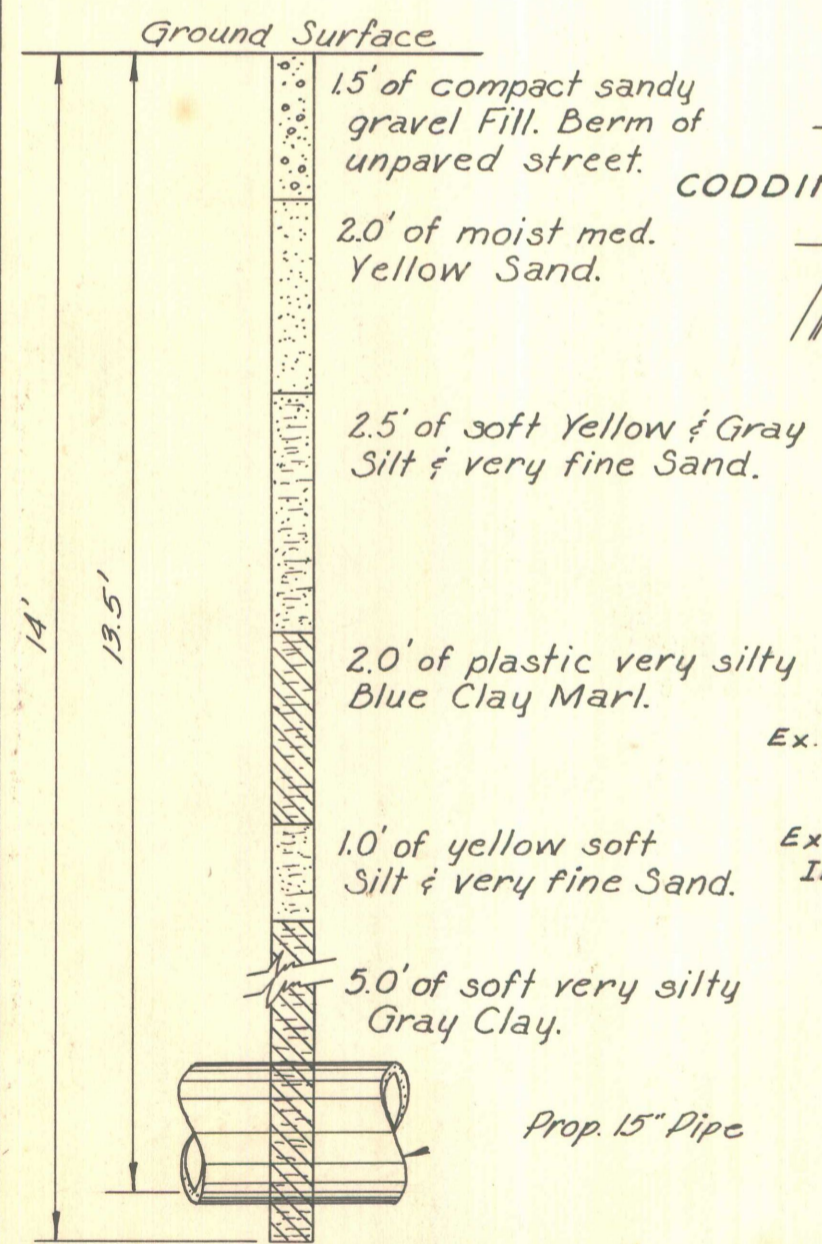 Ground Surface
1.5' of compact sandy
gravel Fill. Berm of
unpaved street.
CODDI
2.0' of moist med.
Yellow Sand.
2.5' of soft Yellow & Gray
Silt & very fine Sand.
14'
13.5'
2.0' of plastic very silty
Blue Clay Marl.
Ex.
1.0' of yellow soft
Silt & very fine Sand.
Ex
5.0' of soft very silty
Gray Clay.
Prop. 15" Pipe